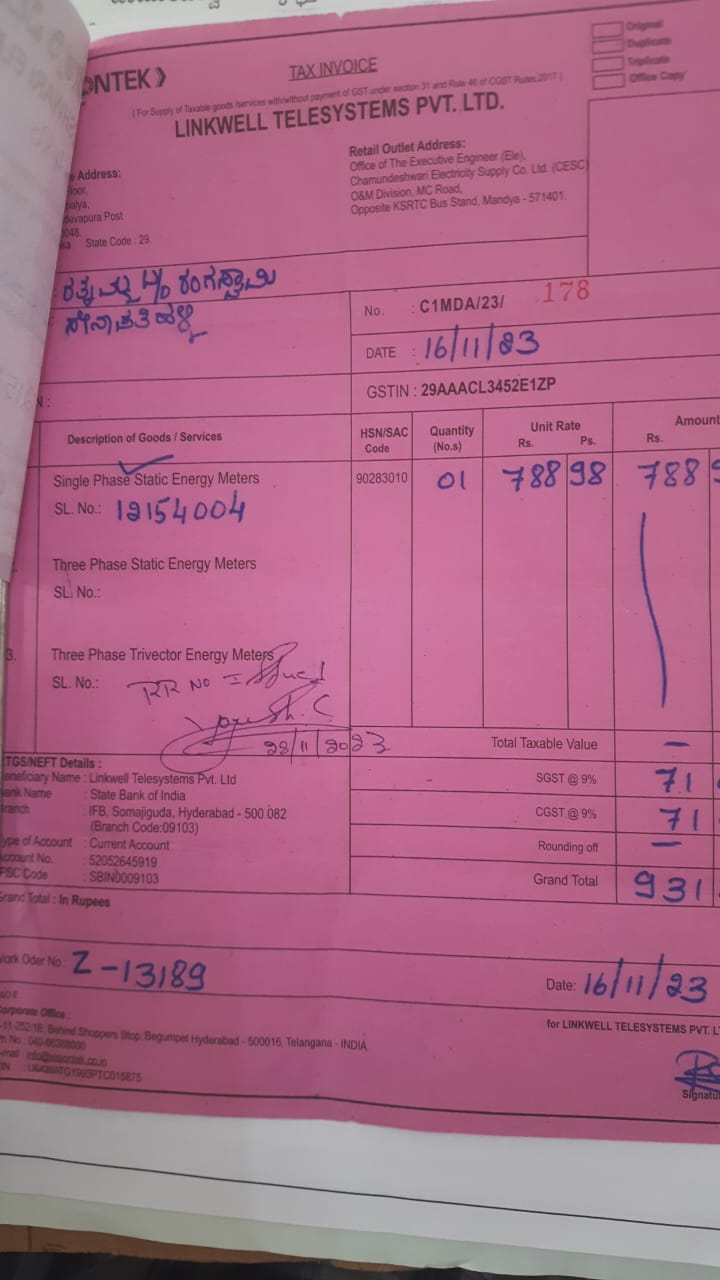 ONTEK
TAX INVOICE
Original
Duplicate
Triplicate
Office Copy
( For Supply of Taxable goods /services with/without payment of GST under section 31 and Rule 46 of CGST Rules.2017 )
LINKWELL TELESYSTEMS PVT. LTD.
Address:
oor,
palya,
devapura Post
048.
ka State Code : 29.
Retail Outlet Address:
Office of The Executive Engineer (Ele),
Chamundeshwari Electricity Supply Co. Ltd. (CESC)
O&M Division, MC Road,
Opposite KSRTC Bus Stand, Mandya - 571401.
ರತ್ನಮ್ಮ W/o ರಂಗಸ್ವಾಮಿ
No. : C1MDA/23/ 178
DATE : 16/11/23
N : GSTIN : 29AAACL3452E1ZP
Description of Goods / Services HSN/SAC Code Quantity (No.s) Unit Rate Rs. Ps. Amount Rs.
Single Phase Static Energy Meters 90283010 01 788 98 788 9
SL. No.: 12154004
Three Phase Static Energy Meters
SL. No.:
3. Three Phase Trivector Energy Meters
SL. No.: RR NO Issued
28/11/2023
Total Taxable Value —
SGST @ 9% 71
CGST @ 9% 71
Rounding off —
Grand Total 931
TGS/NEFT Details :
eneficiary Name : Linkwell Telesystems Pvt. Ltd
ank Name : State Bank of India
ranch : IFB, Somajiguda, Hyderabad - 500 082
(Branch Code:09103)
ype of Account : Current Account
ccount No. : 52052645919
FSC Code : SBIN0009103
Grand Total : In Rupees
Work Oder No : Z-13189
Date: 16/11/23
for LINKWELL TELESYSTEMS PVT. L
Corporate Office :
-11-252/1B, Behind Shoppers Stop, Begumpet Hyderabad - 500016, Telangana - INDIA
Signatu